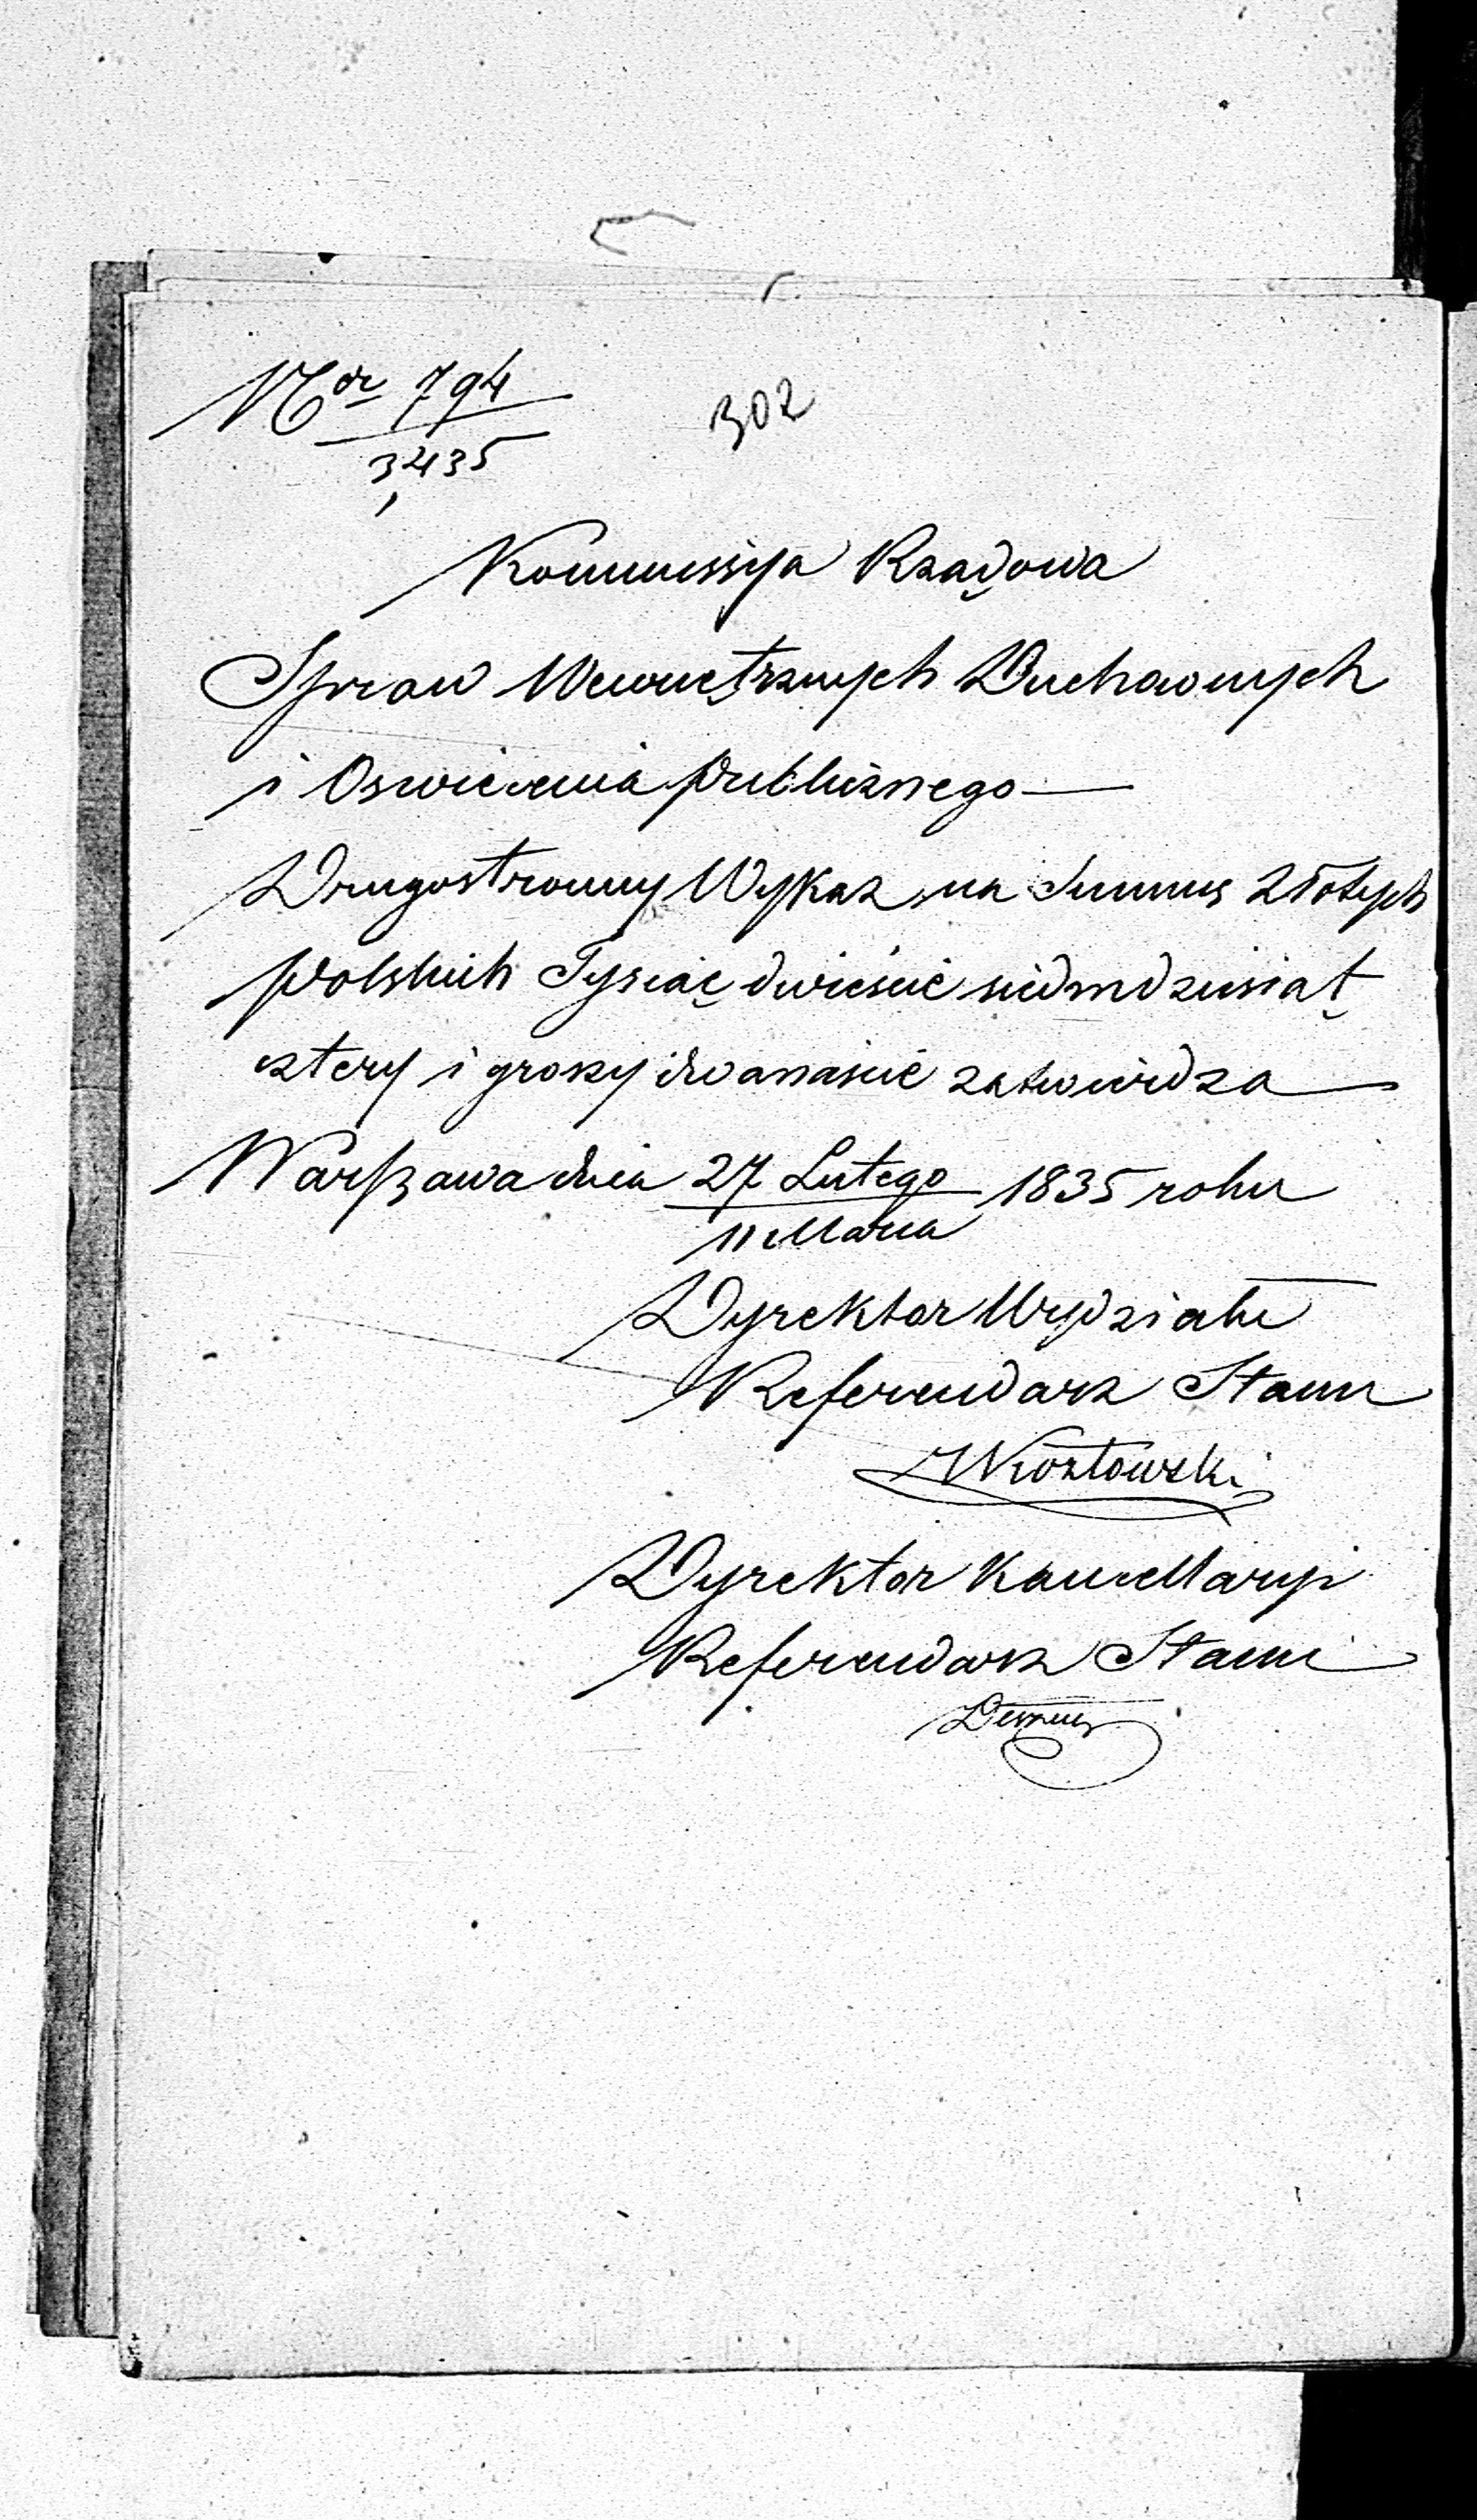 Nör 794
302
3435
Kommissya Rządowa
Spraw Wewnętrznych Duchownych
i Oswiecenia publicznego —
Drugostronny Wykaz na Summę złotych
polskich Tysiąc dwieście siedmdziesiąt
cztery i groszy dwanaście zatwierdza —
Warszawa dnia 27 Lutego 1835 roku
11 Marca
Dyrektor Wydziału
Referendarz Stanu
Kozłowski
Dyrektor Kancellaryi
Referendarz Stanu